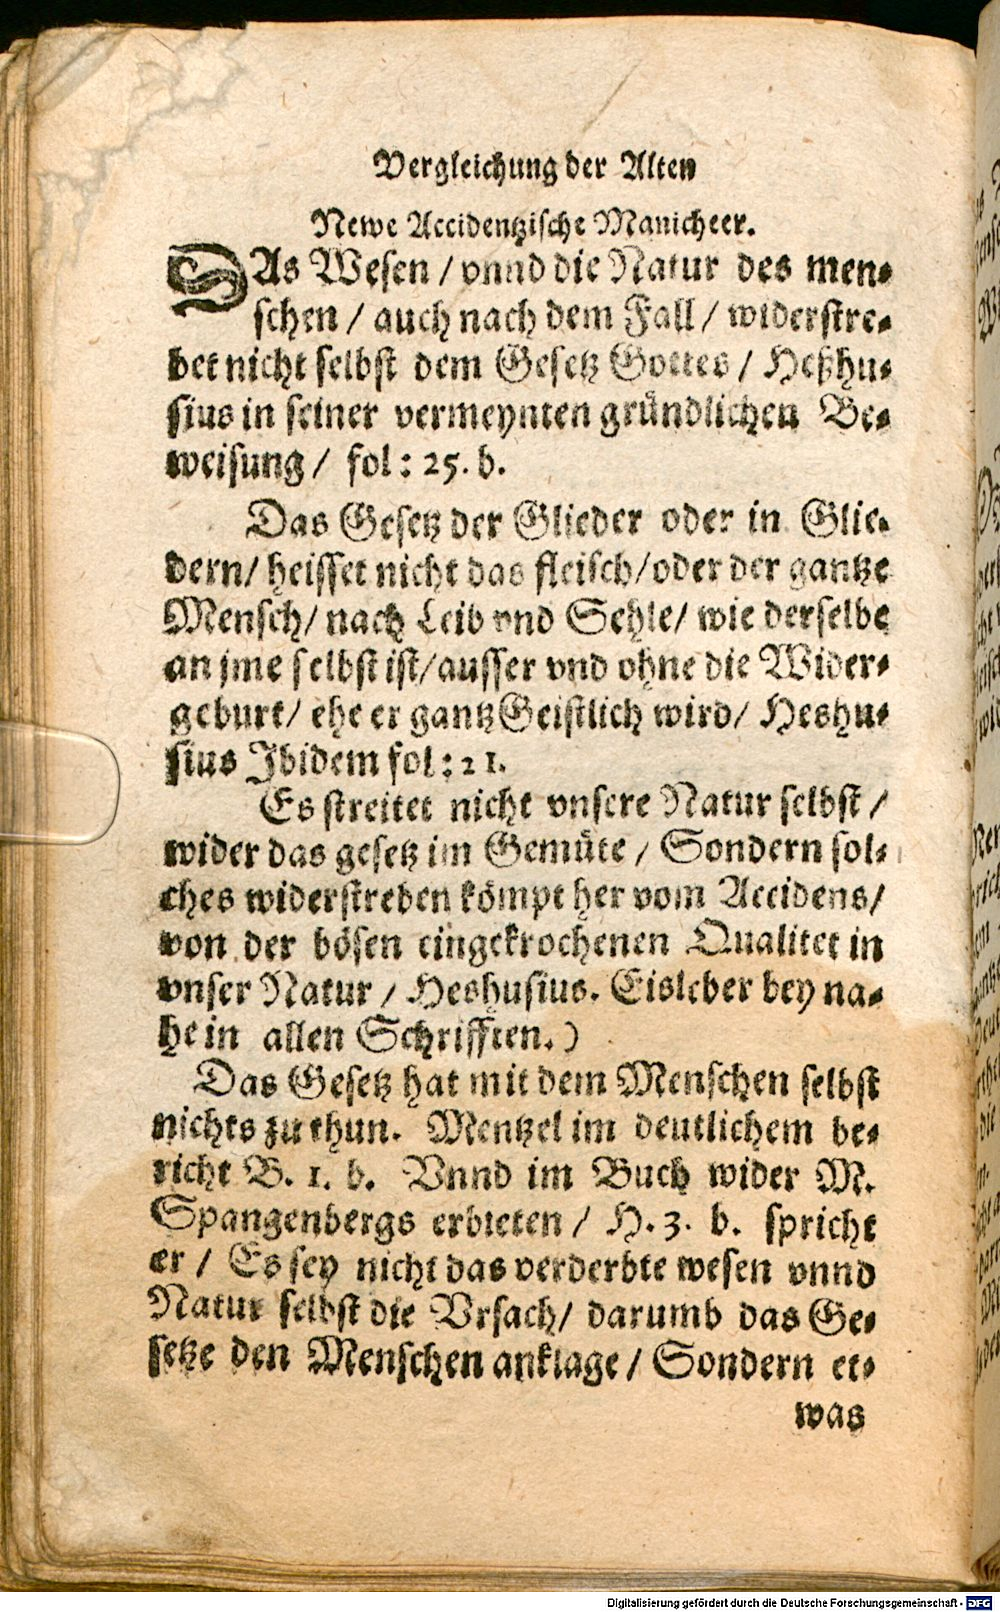 Vergleichung der Alten
Newe Accidentzische Manicheer.
DAs Wesen / vnnd die Natur des men⸗
schen / auch nach dem Fall / widerstre⸗
bet nicht selbst dem Gesetz Gottes / Heßhu⸗
sius in seiner vermeynten gründlichen Be⸗
weisung / fol: 25. b.
Das Gesetz der Glieder oder in Glie⸗
dern / heisset nicht das fleisch / oder der gantze
Mensch / nach Leib vnd Sehle / wie derselbe
an jme selbst ist / ausser vnd ohne die Wider⸗
geburt / ehe er gantz Geistlich wird / Heshu⸗
sius Ibidem fol: 21.
Es streitet nicht vnsere Natur selbst /
wider das gesetz im Gemüte / Sondern sol⸗
ches widerstreben kömpt her vom Accidens /
von der bösen eingekrochenen Qualitet in
vnser Natur / Heshusius. Eisleber bey na⸗
he in allen Schrifften.)
Das Gesetz hat mit dem Menschen selbst
nichts zu thun. Mentzel im deutlichem be⸗
richt B. 1. b. Vnnd im Buch wider M.
Spangenbergs erbieten / H. 3. b. spricht
er / Es sey nicht das verderbte wesen vnnd
Natur selbst die Vrsach / darumb das Ge⸗
setze den Menschen anklage / Sondern et⸗
was
Digitalisierung gefördert durch die Deutsche Forschungsgemeinschaft - DFG